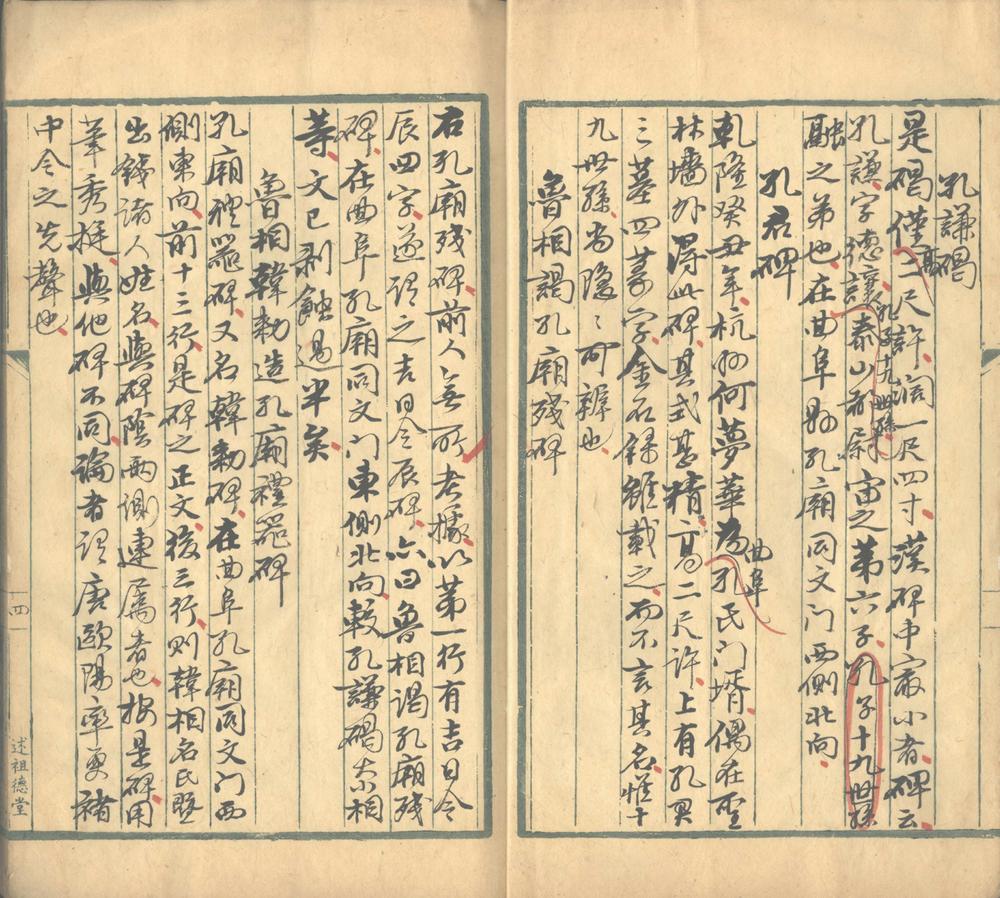 孔謙碣
是碣僅二尺許濶一尺四寸漢碑中㝡小者碑云
高
孔謙字德讓泰山都尉宙之第六子孔子十九世孫
孔子十九世孫
融之弟也在曲阜縣孔廟同文门西側北向
孔君碑
乹隆癸丑年杭州何夢華為孔氏门壻偶在聖
曲阜
林墻外得此碑其式甚精高二尺許上有孔君
之墓四篆字金石録雖載之而不言其名惟十
九世孫尚隐〻可辨也
魯相謁孔廟残碑
右孔廟残碑前人無所考據以第一行有吉日令
辰四字遂谓之吉日令辰碑亦曰魯相谒孔廟残
碑在曲阜孔廟同文门東側北向較孔謙碣亦相
等文已剥蝕過半矣
魯相韓勅造孔廟禮器碑
孔廟禮器碑又名韓勅碑在曲阜孔廟同文门西
側東向前十三行是碑之正文後三行则韓相名氏暨
出錢諸人姓名與碑陰两側連属者也按是碑用
筆秀挺與他碑不同論者谓唐歐陽率更褚
中令之先聲也
一四一
述祖德堂